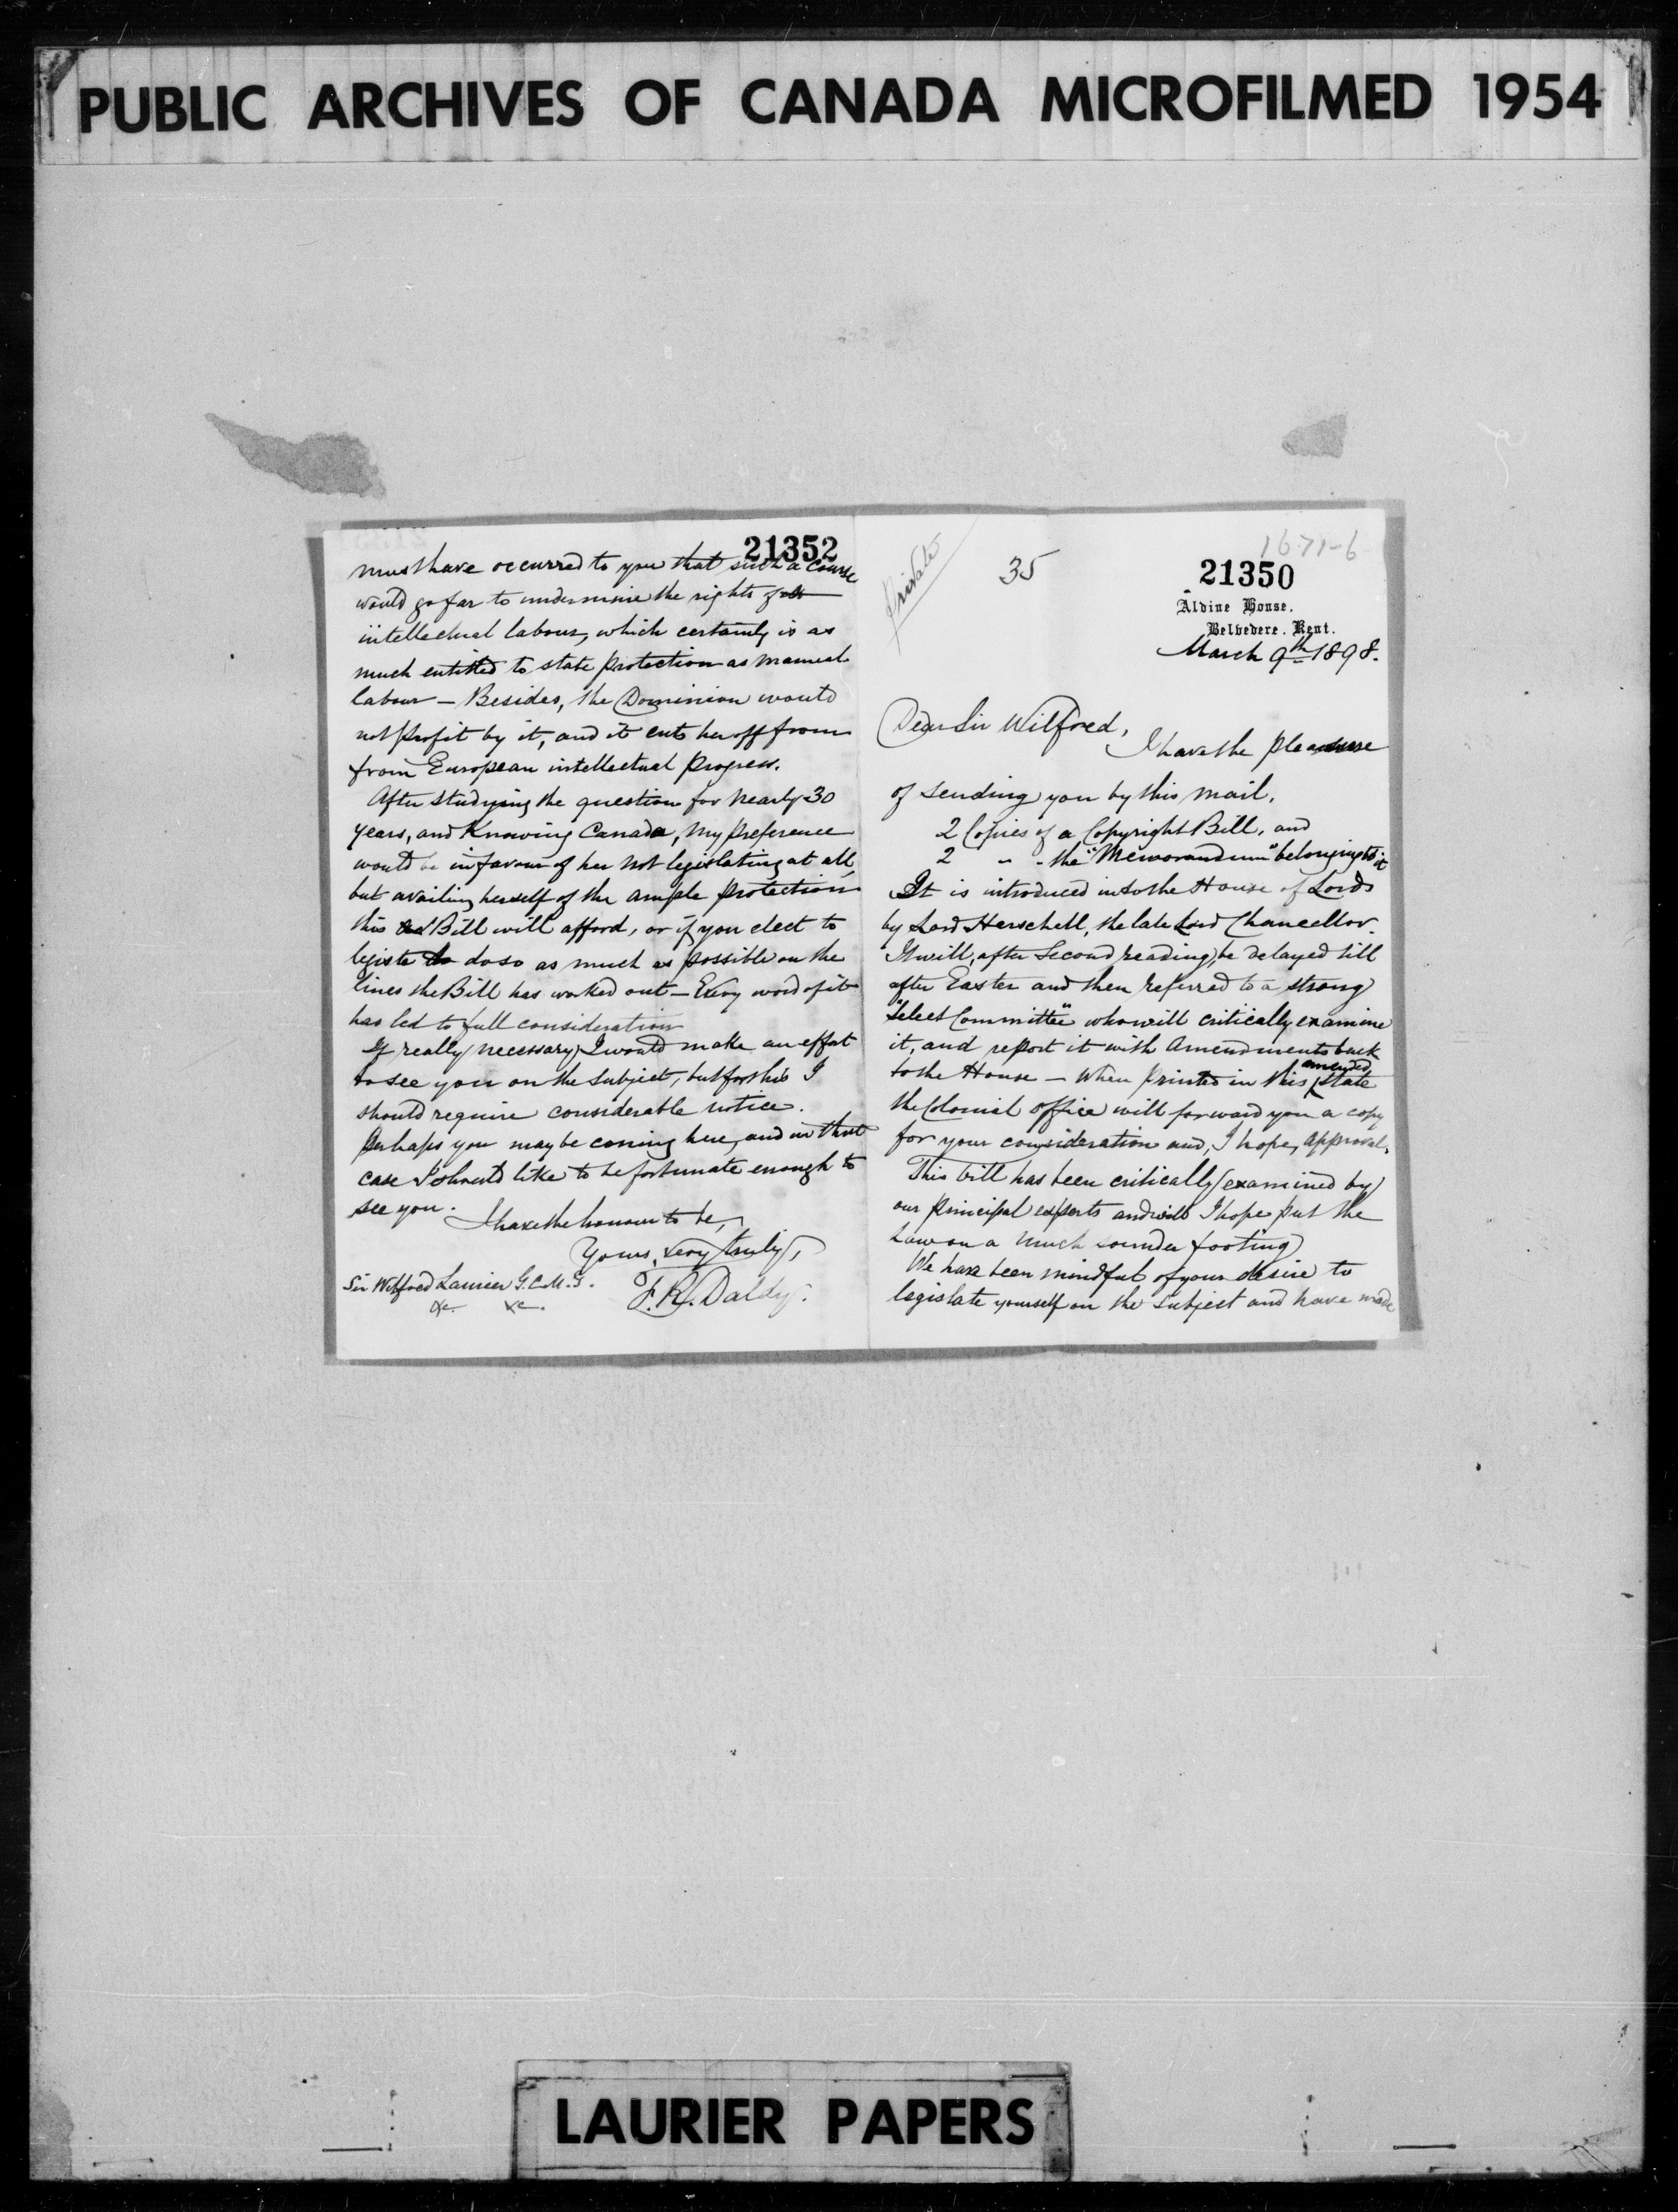 PUBLIC ARCHIVES OF CANADA MICROFILMED 1954
21352
must have occurred to you that such a course
would go far to undermine the rights of
intellectual labour, which certainly is as
much entitled to state protection as manual
labour — Besides, the Dominion would
not profit by it, and it cuts her off from
from European intellectual progress.
After studying the question for nearly 30
years, and knowing Canada, my preference
would be in favour of her not legislating at all,
but availing herself of the ample protection
this Bill will afford, or if you elect to
legiste to do so as much as possible on the
lines the Bill has worked out — Every word of it
has led to full consideration
If really necessary, I would make an effort
to see you on the subject, but for this I
should require considerable notice.
Perhaps you may be coming here, and in that
case I should like to be fortunate enough to
see you.
I have the honour to be,
Yours, very truly,
F. R. Daldy.
Sir Wilfred Laurier G.C.M.G.
&c. &c.
Private
35
1671-6
21350
Aldine House.
Belvedere. Kent.
March 9th 1898.
Dear Sir Wilfred,
I have the pleasure
of sending you by this mail,
2 Copies of a Copyright Bill, and
2 " " the "Memorandum" belonging to it
It is introduced into the House of Lords
by Lord Herschell, the late Lord Chancellor.
It will, after Second reading, be delayed till
after Easter and then referred to a strong
"Select Committee" who will critically examine
it, and report it with Amendments back
to the House — When printed in this amended state
the Colonial office will forward you a copy
for your consideration and, I hope, approval.
This bill has been critically examined by
our principal experts and will I hope put the
Law on a much sounder footing
We have been mindful of your desire to
legislate yourself on the subject and have made
LAURIER PAPERS